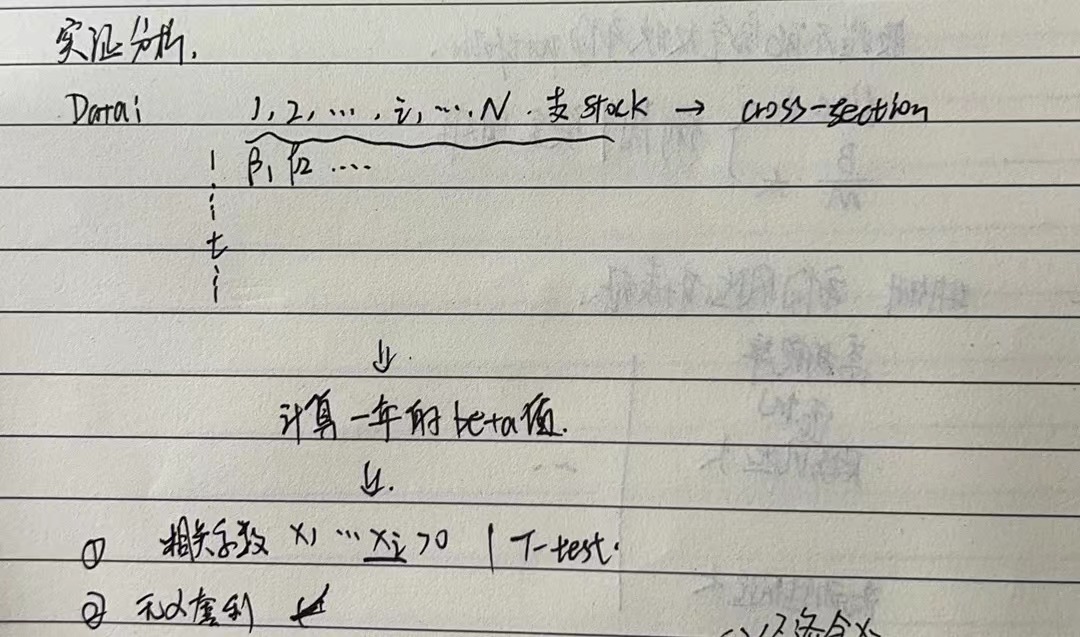 实证分析.
Data: 1, 2, ..., i, ..., N. 支 stock → cross-section
1 β1 β2 ....
t
↓
计算一年的beta值.
↓
① 相关系数 x1 ... xi >0 | T-test.
② 无α套利